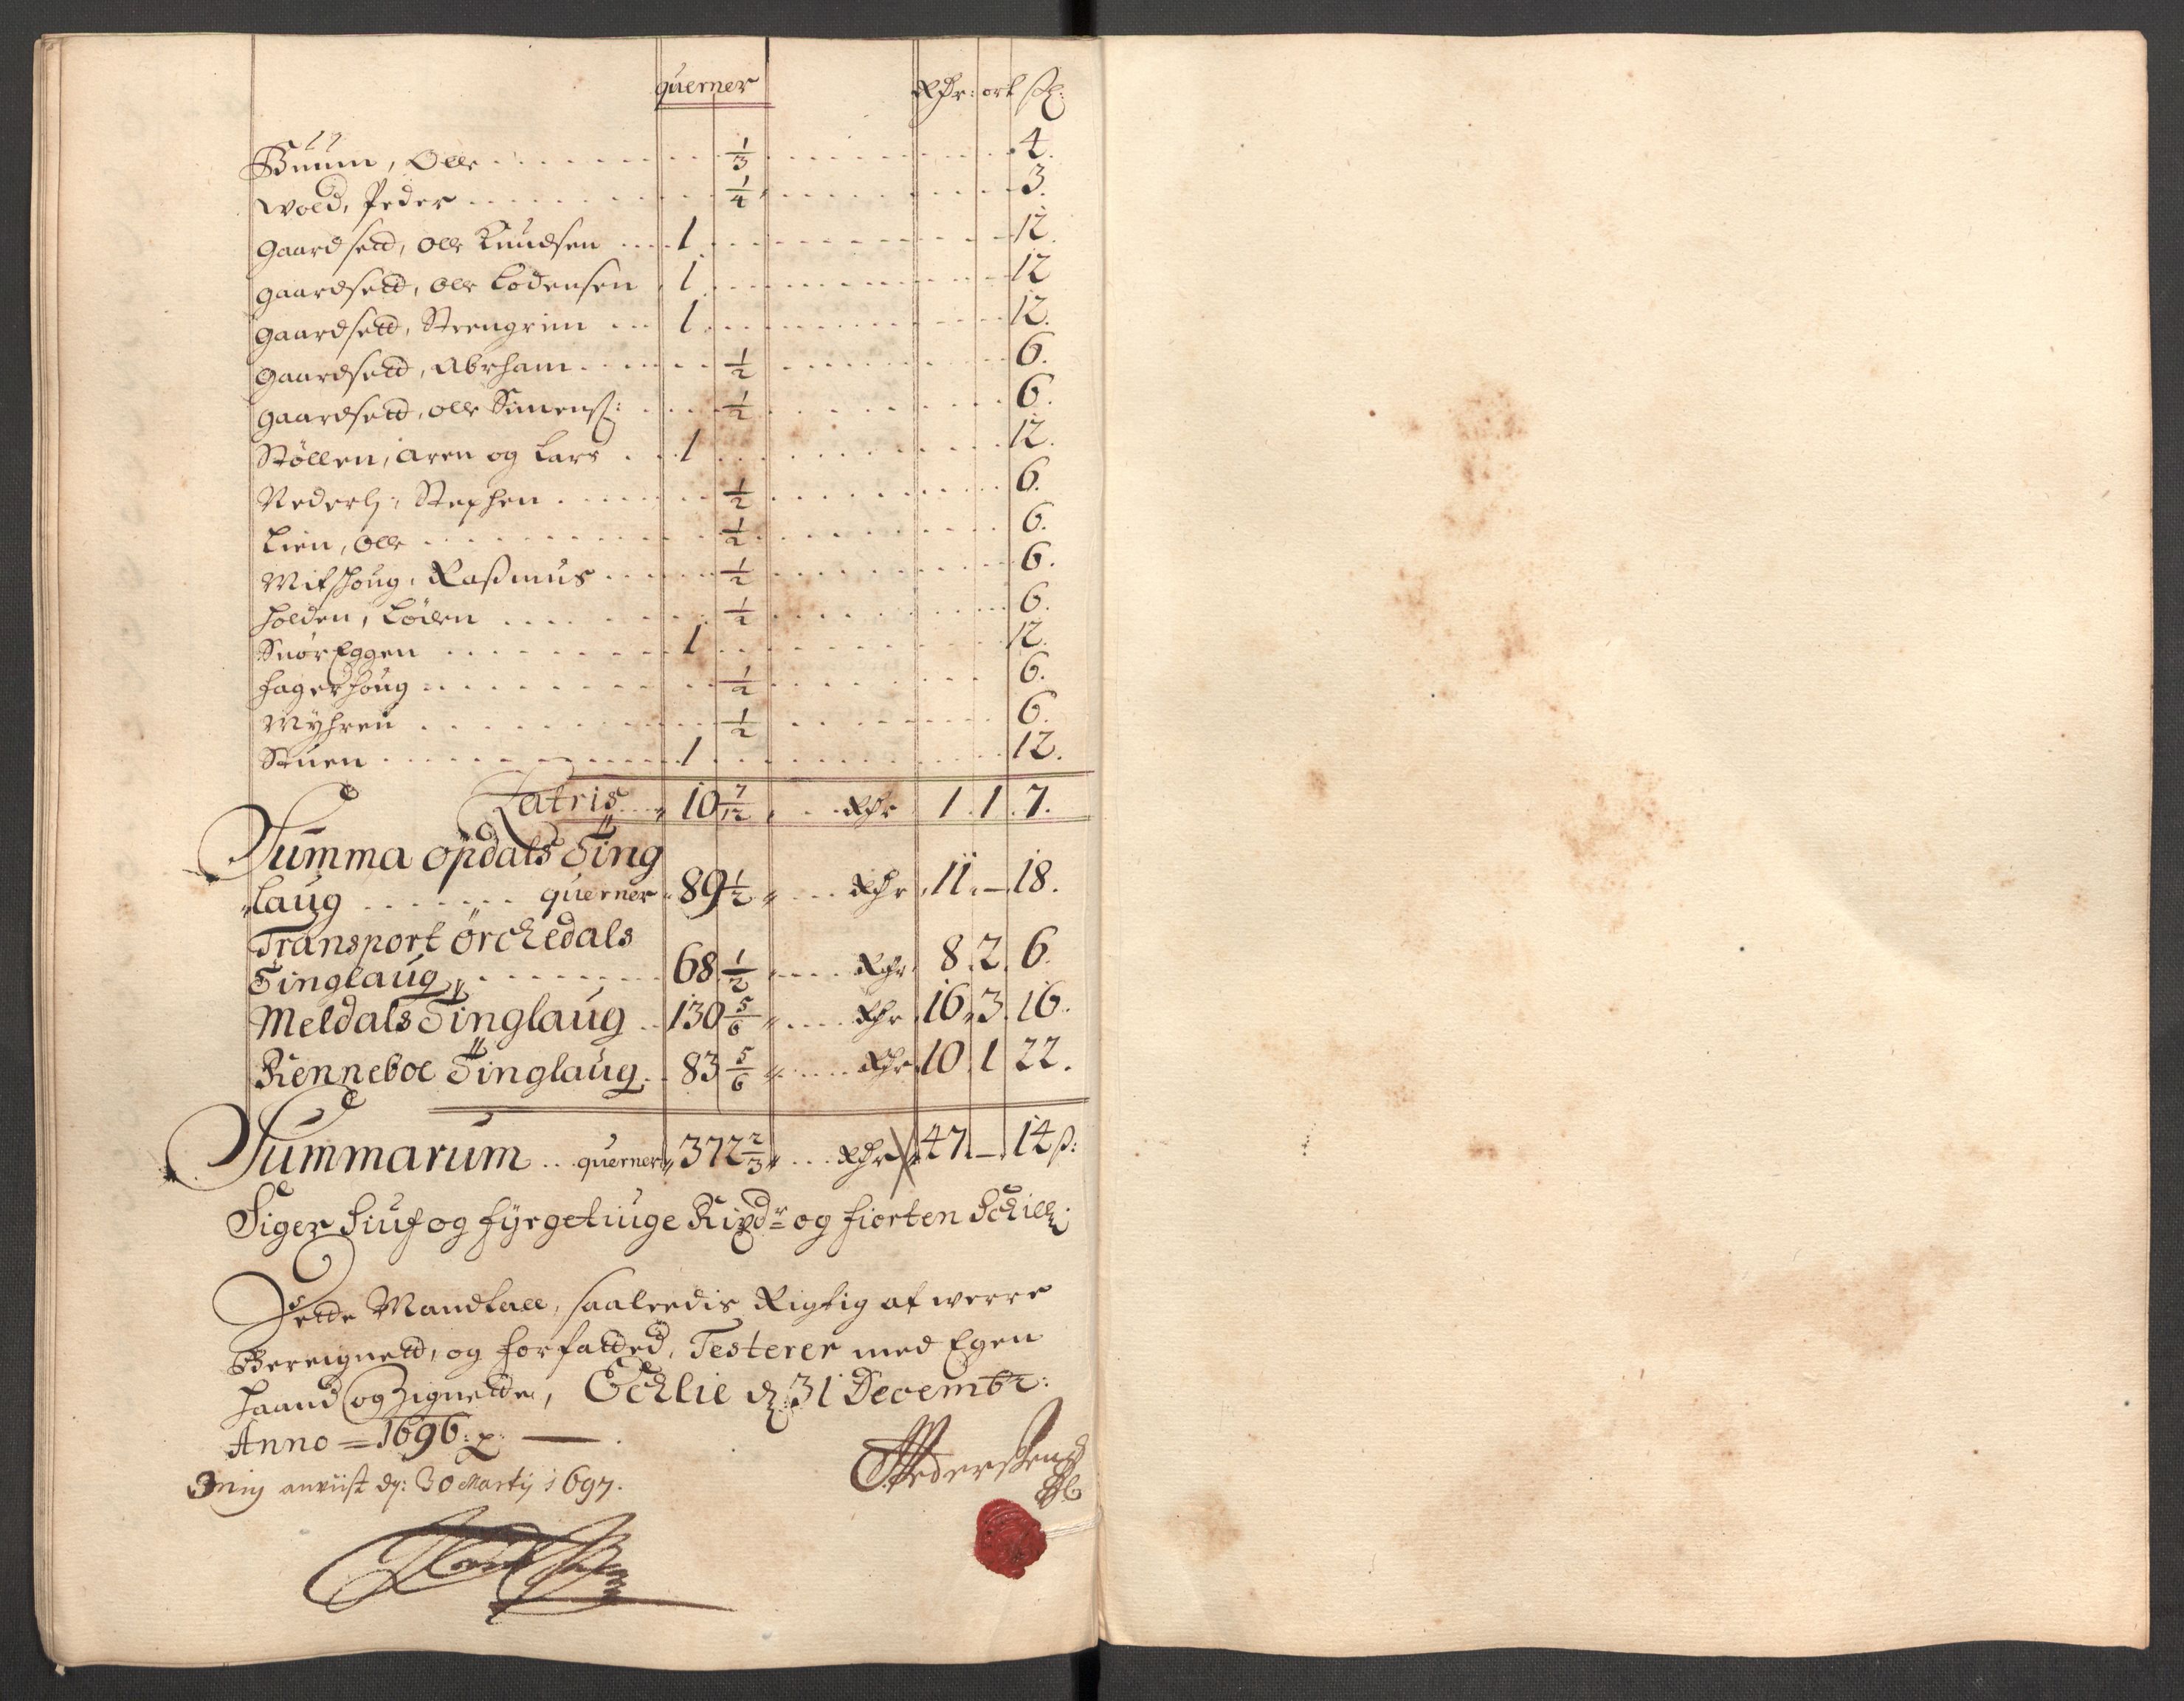 querner Rdr: ort sk:
Buum, Olle 1/3 4.
Wold, Peder 1/4 3.
Gaardsetd, Olle Knudsen 1 12.
Gaardsetd, Olle Lodensen 1 12
Gaardsetd, Steengrim 1 12.
Gaardsetd, Abrham 1/2 6.
Gaardsetd, Olle Simens: 1/2 6.
Støllen, Aren og Lars 1 12.
Stephen 1/2 6.
Lien, Olle 1/2 6.
Mitshoug, Rasmus 1/2 6.
Holden, Loden 1/2 6.
SnørEggen 1 12.
Fagerhoug 1/2 6.
Myhren 1/2 6.
Stuen 1 12.
Latris 10 7/12 Rdr 1. 1. 7.
Summa Opdals Ting
laug querner 89 1/2 Rdr 11. — 18.
Transport Örckedals
Tinglaug 68 1/2 Rdr 8. 2. 6.
Meldals Tinglaug 130 5/6 Rdr 16. 3. 16.
Renneboe Tinglaug 83 5/6 Rdr 10. 1 22.
Summarum querner 372 2/3 Rdr 47. — 14 s:
Siger Siuf og fyrgetiuge Rixdr og fiorten Schill:
Dette Mandtall, saaleedis Rigtig at werre
Bereignett, og forfatted, Testerer med Egen
haand og Zignette, Ecklie d: 31 Decembr:
Anno = 1696: p:
Mig anviist dj: 30 Martij 1697.
Pedersen